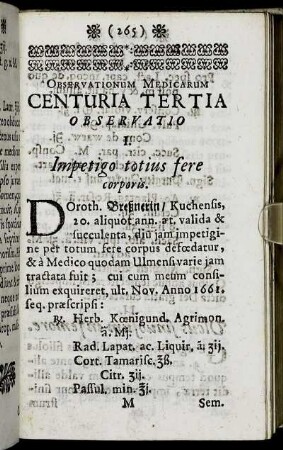 (265)
OBSERVATIONUM MEDICARUM
CENTURIA TERTIA
OBSERVATIO
I.
Impetigo totius fere
corporis.
DOroth. Breßnerin / Kuchensis,
20. aliquot ann. æt. valida &
succulenta, diu jam impetigi-
ne per totum fere corpus defœdatur,
& à Medico quodam Ulmensi varie jam
tractata fuit; cui cum meum consi-
lium exquireret, ult. Nov. Anno 1661.
seq. præscripsi:
℞. Herb. Kœnigund. Agrimon.
ā. Mj.
Rad. Lapat. ac. Liquir. ā. ʒij.
Cort. Tamarisc. ʒß.
Citr. ʒij.
Passul. min. ℥j.
M Sem.